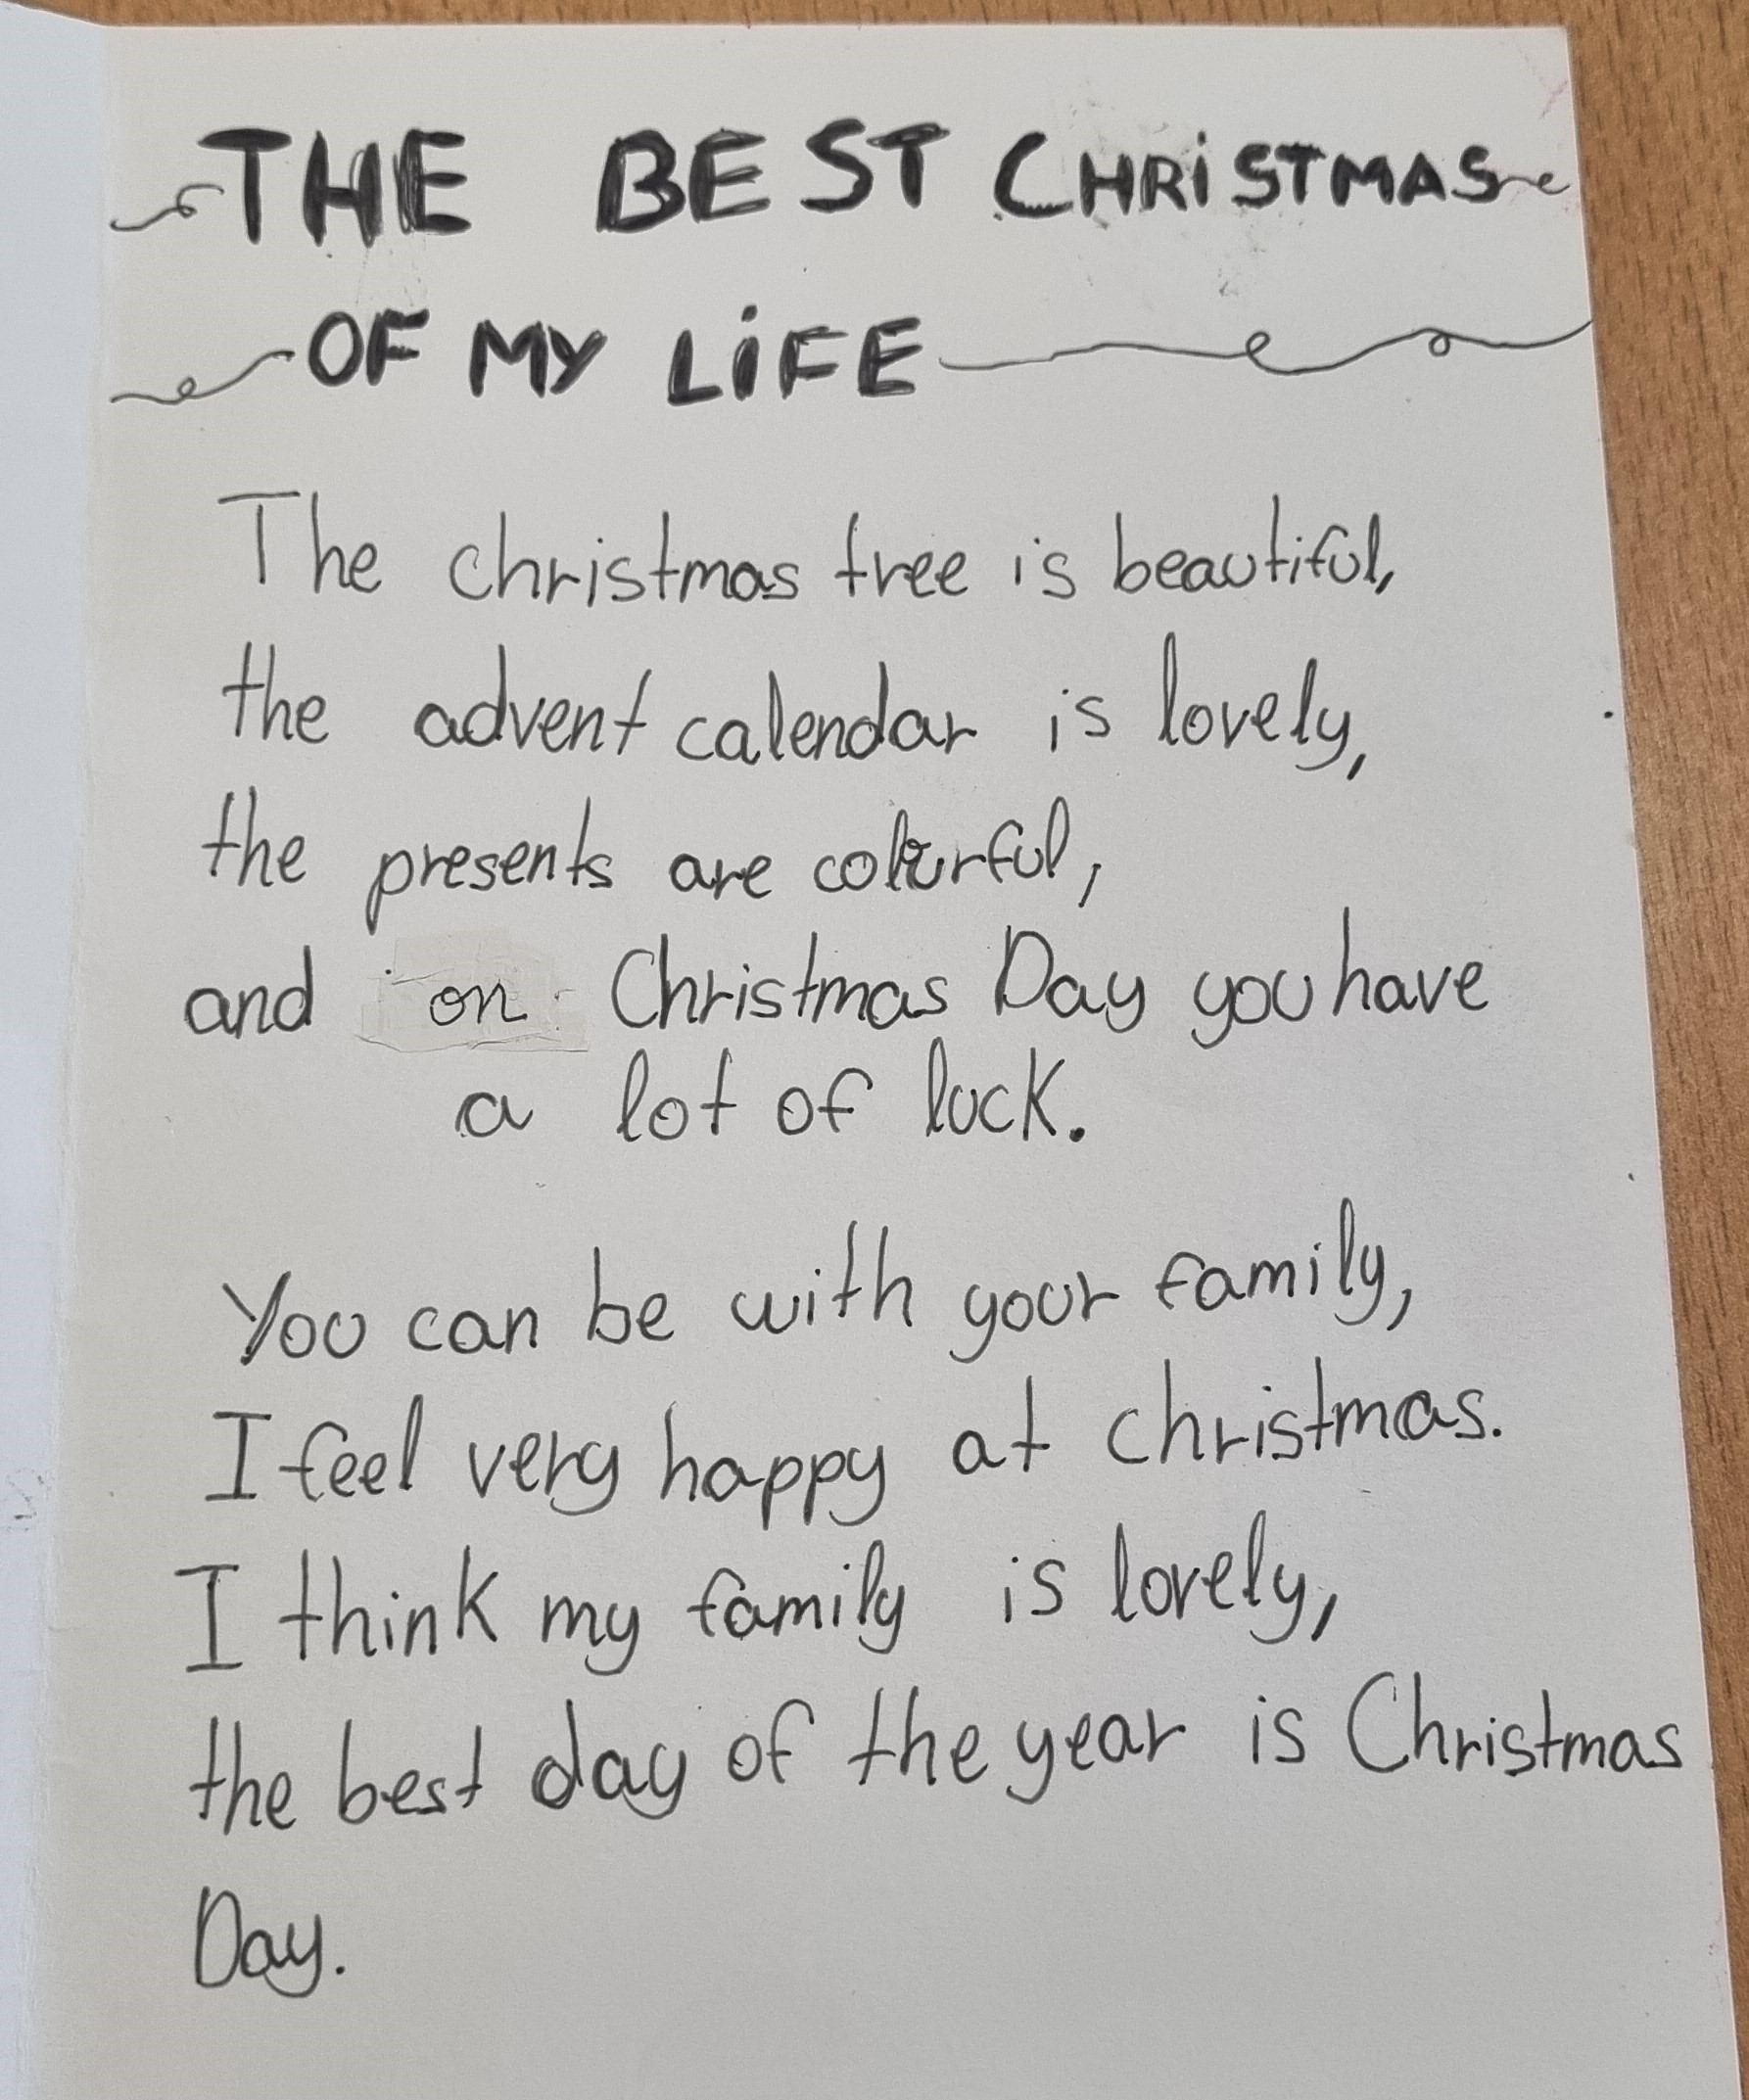 THE BEST CHRiSTMAS
OF MY LiFE
The christmas tree is beautiful,
the advent calendar is lovely,
the presents are colourful,
and on Christmas Day you have
a lot of luck.
You can be with your family,
I feel very happy at christmas.
I think my family is lovely,
the best day of the year is Christmas
Day.